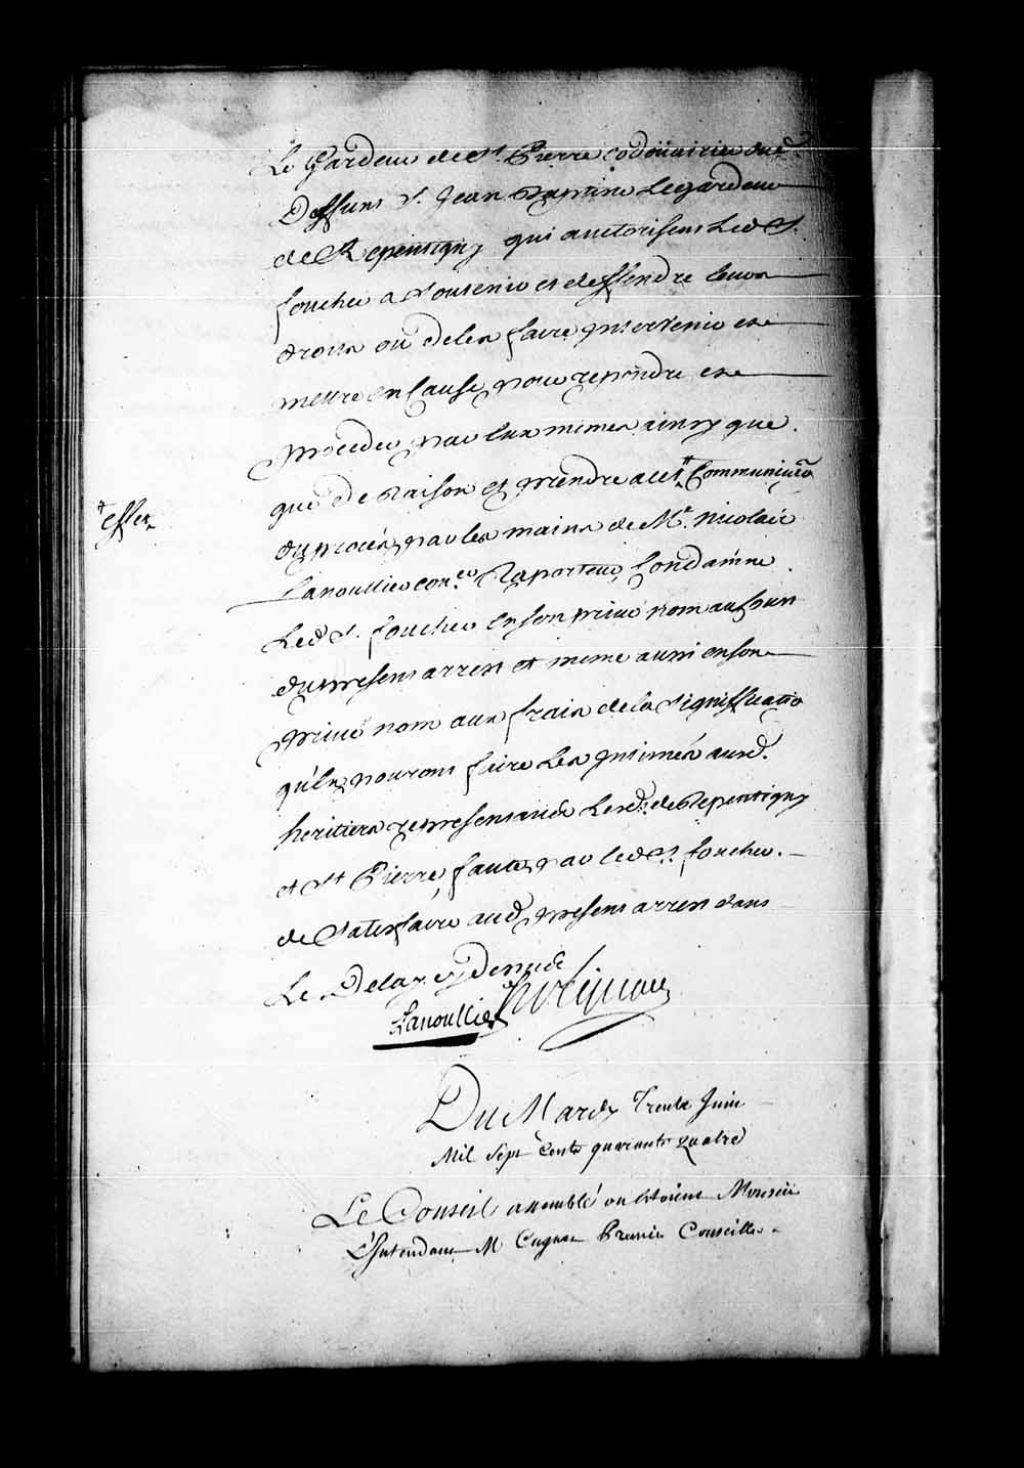 Le Gardeur de St. Pierre codonairier dud.
Deffunt S. Jean Baptiste Legardeur
de Repentigny qui auctorisent Led S.
foucher a soutenir et deffendre leurs
droits ou de les faire intervenir et
mettre en Cause, pour repondre et
proceder par eux memes ainsy que.
que de Raison et prendre a cet + Communica͠on
du procés par les mains de Me. Nicolas
+ effet
Lanoullier con.er Raporteur, Condamne
Led S. foucher en son privé nom au Coust
du present arrest et meme aussi en son
privé nom aux fraix de la signiffica͠on
qu'en pouront faire Les intimés ausd.
heritiers representants Lesd. de Repentigny
et St Pierre, faute par led S. foucher.
de satisfaire aud. present arrest dans
Le Delay cy Dessus
Lanoullier Hocquart
Du Mardy Trente Juin
Mil Sept Cents quarante quatre
Le Conseil assemblé ou Etoient Monsieur
L'Intendant M Cugnet Premier Conseiller